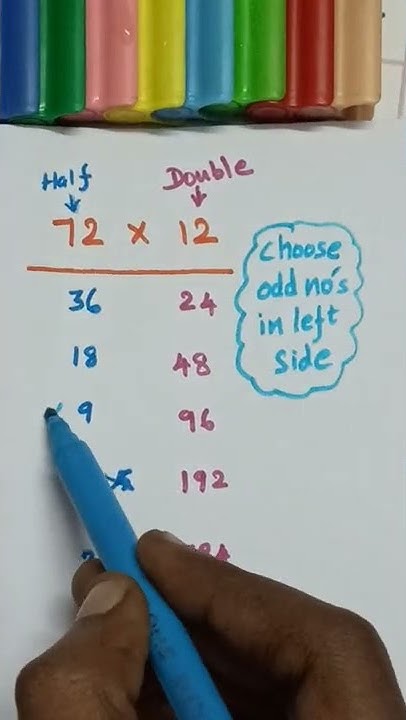 Half Double
72 x 12
36 24
18 48
9 96
192
choose
odd no's
in left
side